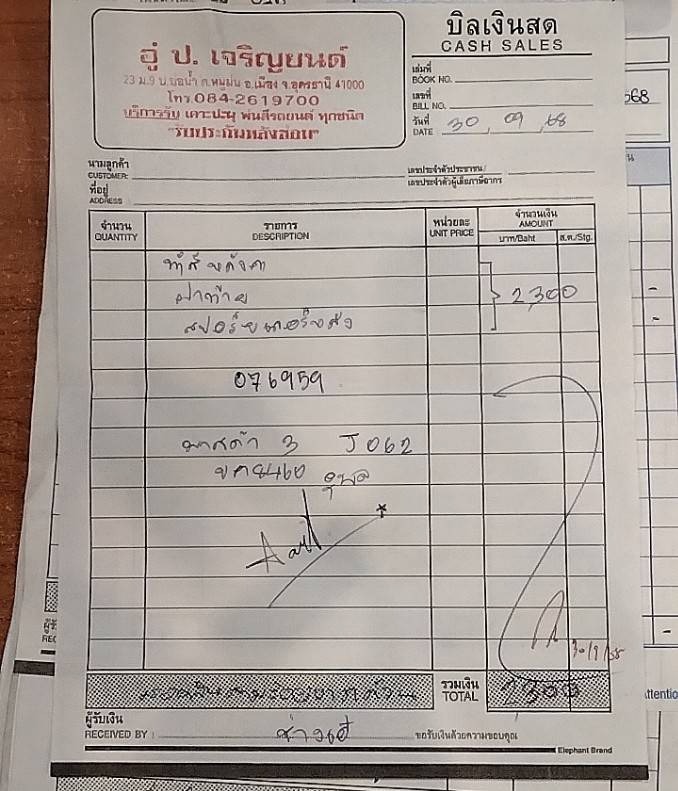 บิลเงินสด
CASH SALES
อู่ ป. เจริญยนต์
23 ม.9 บ.บ่อน้ำ ต.หมูม่น อ.เมือง จ.อุดรธานี 41000
โทร.084-2619700
บริการรับ เคาะปะผุ พ่นสีรถยนต์ ทุกชนิด
"รับประกันหลังซ่อม"
เล่มที่
BOOK NO.
เลขที่
BILL NO.
วันที่ 30, 09, 68
DATE
568
นามลูกค้า
CUSTOMER:
เลขประจำตัวประชาชน/
เลขประจำตัวผู้เสียภาษีอากร
ที่อยู่
ADDRESS
จำนวน รายการ หน่วยละ จำนวนเงิน
QUANTITY DESCRIPTION UNIT PRICE AMOUNT
บาท/Baht ส.ต./Stg.
ทำสี หลังคา
ฝาท้าย
สปอร์ย 2,300
076959
มาสด้า 3 J062
ขค8460 อุบล
30/9/68
รวมเงิน
TOTAL 2300
ผู้รับเงิน
RECEIVED BY : ขอรับเงินด้วยความขอบคุณ
Elephant Brand
Attentio